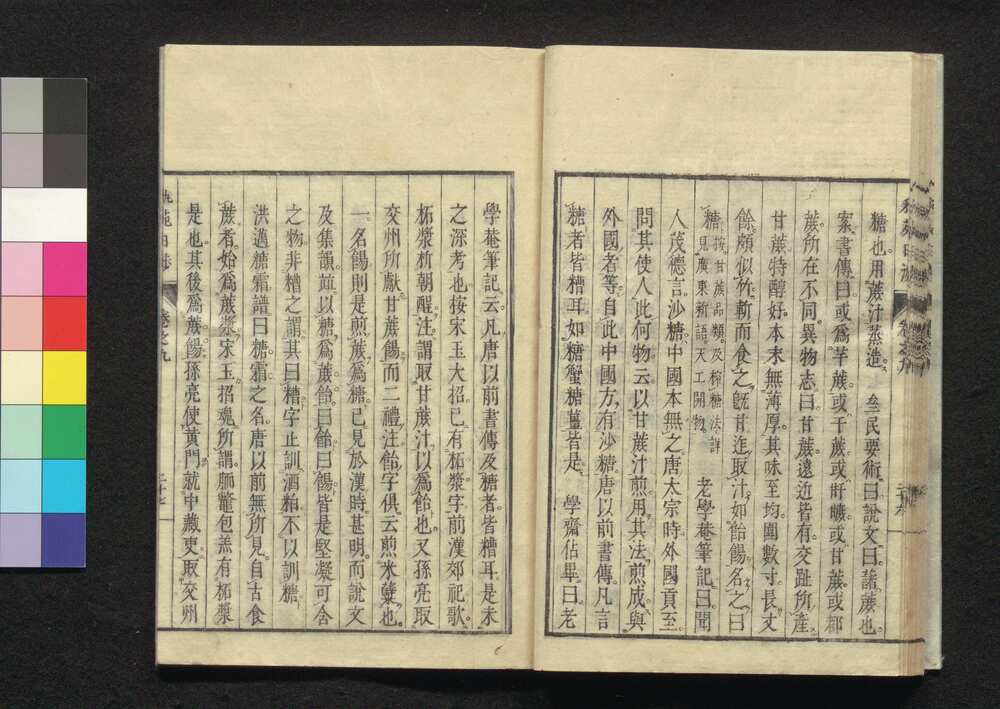 糖也。用蔗汁蒸造。　叁民要術曰說文曰藷蔗也
案書傳曰或爲芋蔗或干蔗或旰曠或甘蔗或都
蔗所在不同。異物志曰甘蔗遠近皆有。交趾所產
甘蔗特醇好。本末無薄厚。其味至均。圍數寸長丈
餘。頗似竹斬而食之旣甘迮取汁。如飴餳名之曰
糖。按。甘蔗品類。及榨糖法詳
見廣東新語。天工開物。　老學菴筆記曰聞
人茂德言沙糖中國本無之唐太宗時。外國貢至
問其使人此何物。云以甘蔗汁煎用其法。煎成與
外國者等。自此中國方有沙糖。唐以前書傳。凡言
糖者皆糟耳。如糖蟹糖薑皆是。　學齋佔畢曰老
學菴筆記云。凡唐以前書傳及糖者。皆糟耳是未
之深考也按宋玉大招已有柘漿字前漢郊祀歌。
柘漿析朝酲。注謂取甘蔗汁以爲飴也。又孫亮取
交州所獻甘蔗餳。而二禮注飴字俱云煎米蘖也。
一名餳。則是煎蔗爲糖。已見於漢時。甚明。而說文
及集韻竝以糖爲蔗飴。曰飴曰餳皆是堅凝可含
之物。非糟之謂。其曰糟字止訓酒粕不以訓糖。
洪邁糖霜譜曰糖霜之名。唐以前無所見。自古食
蔗者始爲蔗漿。宋玉招魂所謂。胹鼈包羔有柘漿
是也。其後爲蔗餳孫亮使黃門就中藏吏取交州
卷之九
二十七